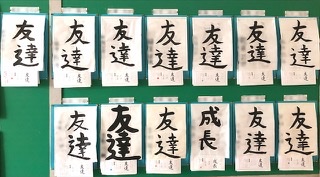 友達
友達
友達
友達
友達
友達
友達
友達
友達
友達
成長
友達
友達